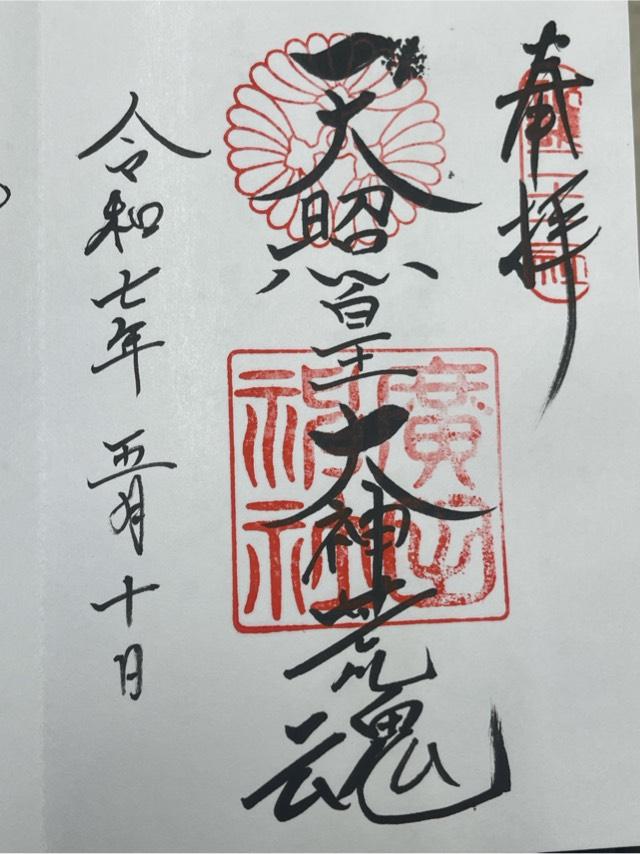 奉拝
天照皇大神荒魂
令和七年 五月 十日
廣田神社